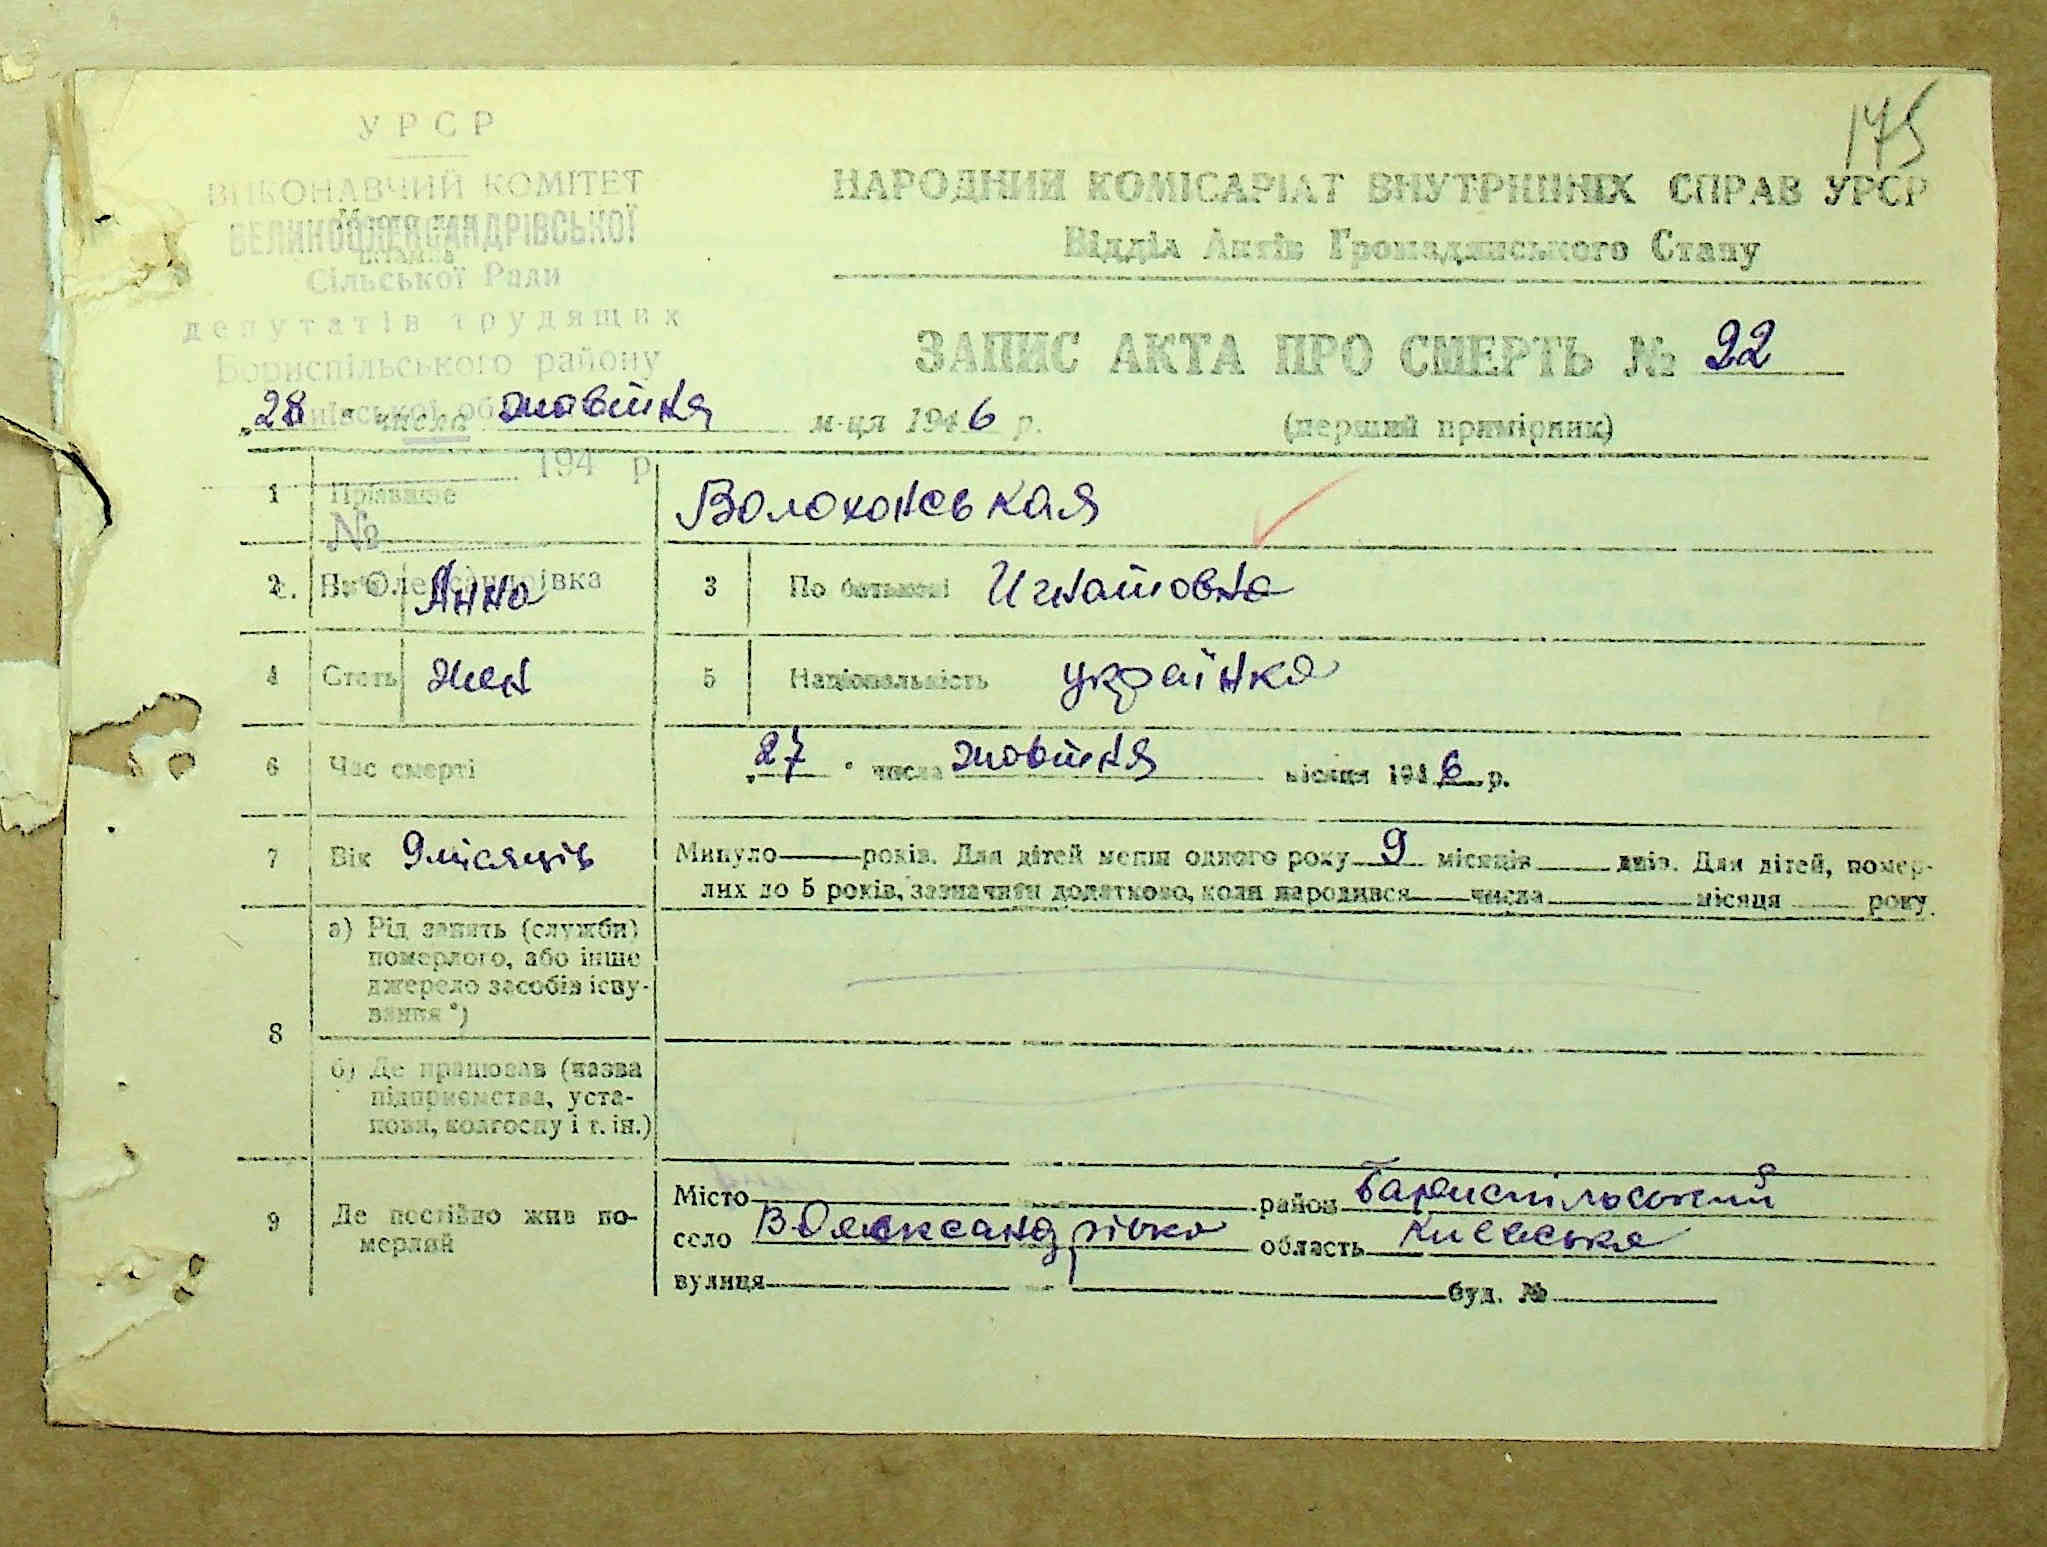 175
УРСР
ВИКОНАВЧИЙ КОМІТЕТ
ВЕЛИКООЛЕКСАНДРІВСЬКОЇ
Сільської Ради
депутатів трудящих
Бориспільського району
194 р
№
с. В. Олександрівка
НАРОДНИЙ КОМІСАРІАТ ВНУТРІШНІХ СПРАВ УРСР
Відділ Актів Громадянського Стану
ЗАПИС АКТА ПРО СМЕРТЬ № 22
(перший примірник)
„28" числа жовтня м-ця 1946 р.
1 Прізвище Волохонськая
2 Анна 3 По батькові Игнатовна
4 Стать жен 5 Національність українка
6 Час смерті „27" числа жовтня місяця 1946 р.
7 Вік 9 місяців Минуло — років. Для дітей менш одного року 9 місяців днів. Для дітей, помер-
лих до 5 років, зазначити додатково, коли народився числа місяця року.
8 а) Рід занять (служби)
померлого, або інше
джерело засобів існу-
вання *)
б) Де працював (назва
підприємства, уста-
нови, колгоспу і т. ін.)
9 Де постійно жив по-
мерлий
Місто район Бариспільський
село В Олександрівка область Киевська
вулиця буд. №